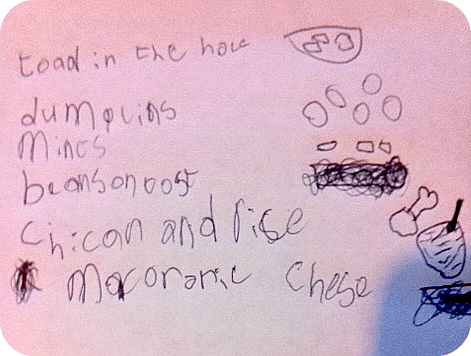 toad in the hole
dumplins
mincs
beansonoost
Chican and rise
Macoronie Chese